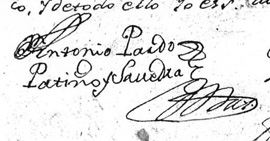 co, y de todo ello yo el s.
Antonio Pardo
Patiño y Saavedra